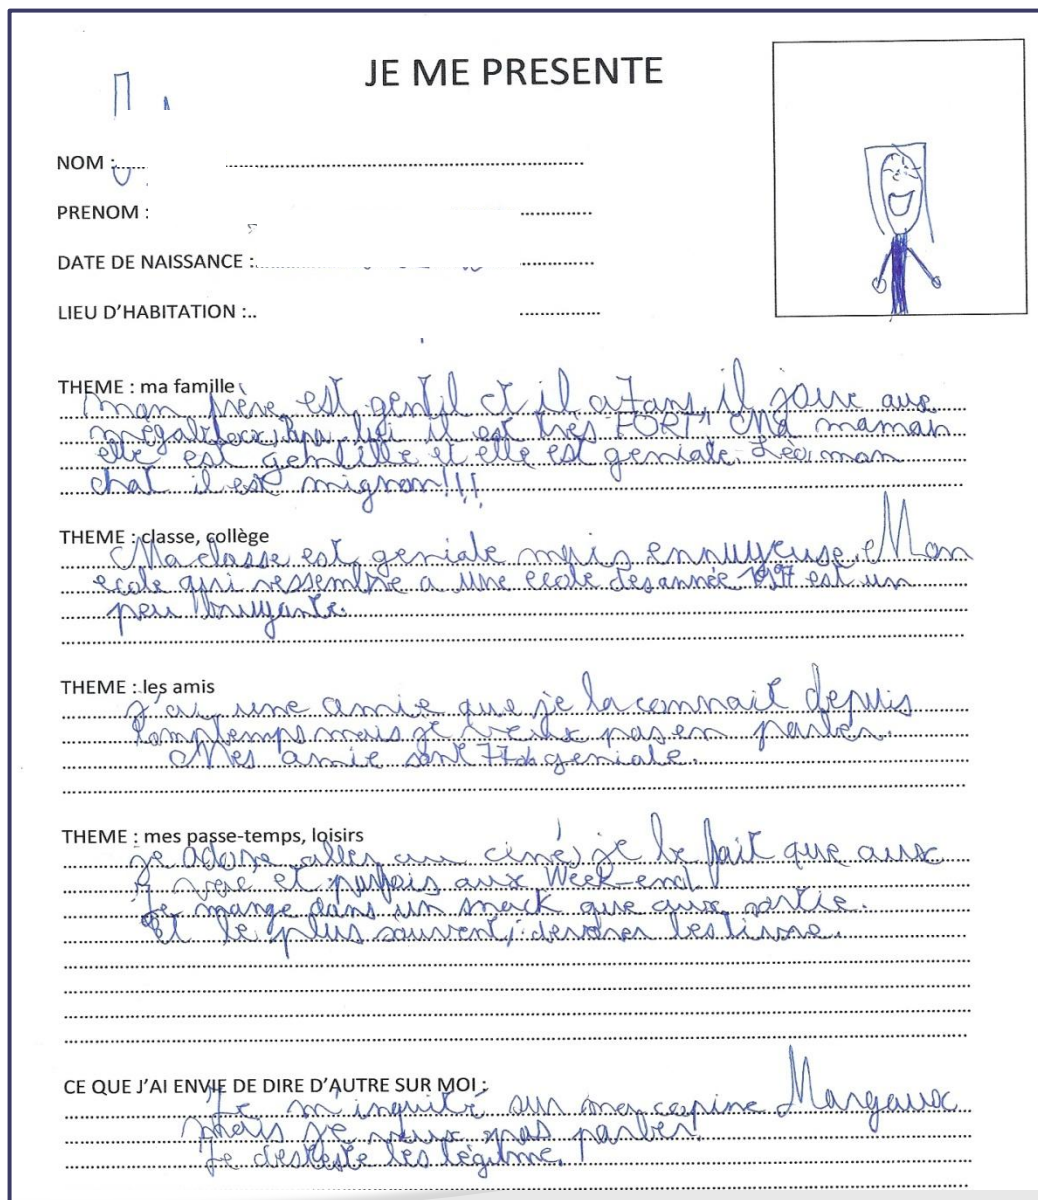 JE ME PRESENTE
NOM :
PRENOM :
DATE DE NAISSANCE :
LIEU D'HABITATION :
THEME : ma famille
mon frère est gentil et il a 7 ans il joue aux
il est très FORT" Ma maman
elle est gentille et elle est geniale. Léo, mon
chat il est mignon!!!
THEME : classe, collège
Ma classe est geniale mais ennuyeuse. Mon
ecole qui ressemble a une ecole des année 1997 est un
peu bruyante.
THEME : les amis
J'ai une amie que je la connait depuis
longtemps mais je veux pas en parler.
Mes amie sont geniale.
THEME : mes passe-temps, loisirs
je adore aller au ciné, je le fait que aux
et parfois aux Week-end
Je mange dans un snack que aux sortie.
Et le plus souvent, devorer les livre.
CE QUE J'AI ENVIE DE DIRE D'AUTRE SUR MOI :
Je m'inquité sur ma copine Margaux
mais je veux pas parler.
Je desteste les légume.